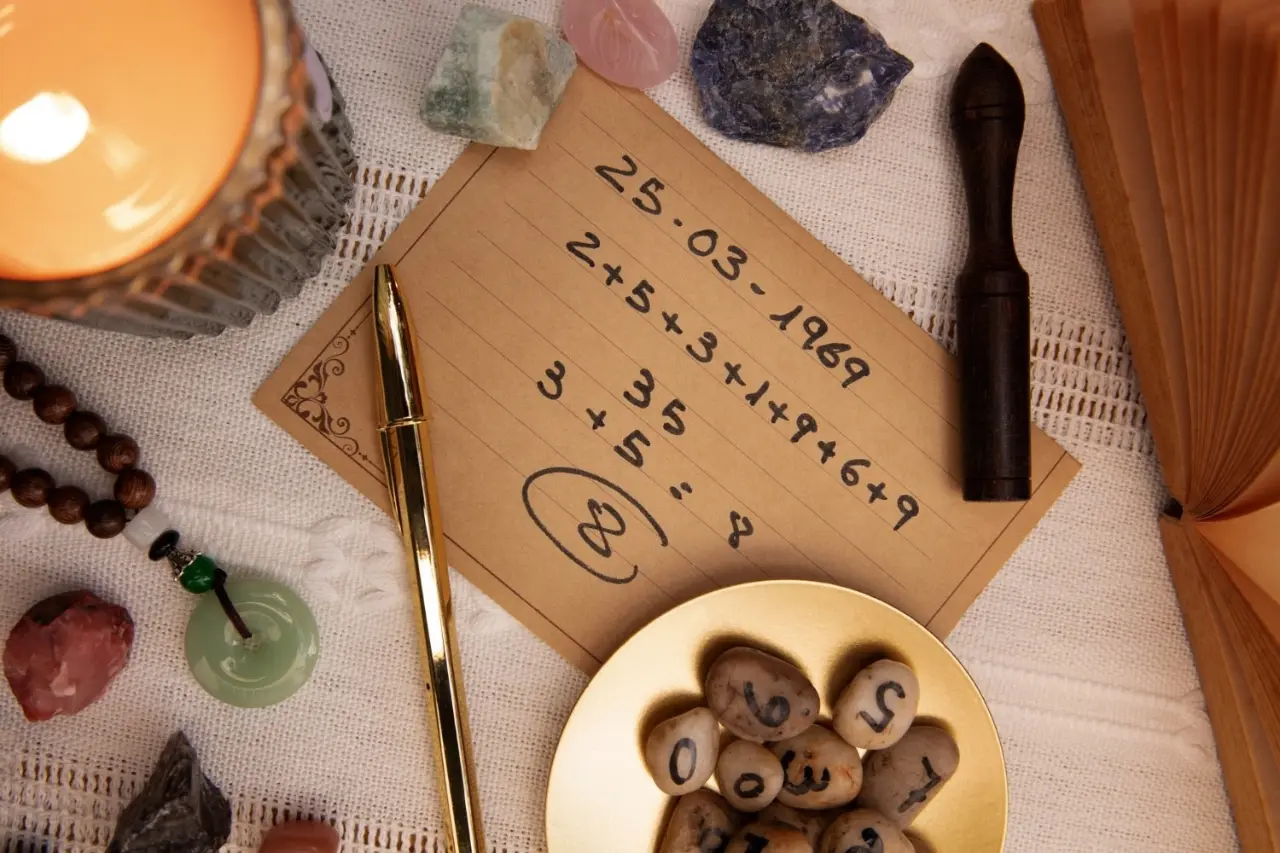 25.03-1969
2+5+3+1+9+6+9
35
3+5 = 8
8
6
5
0
0
3
7